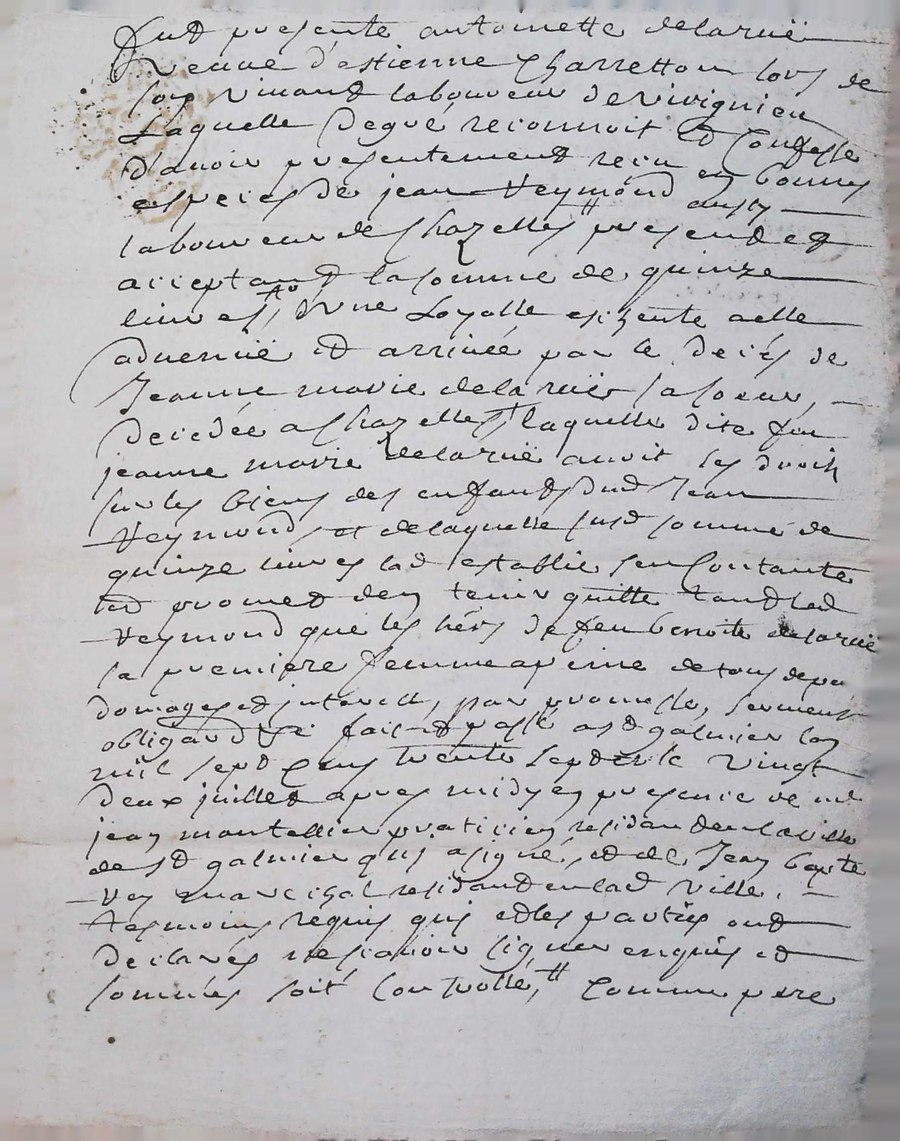 Fut presente antoinette delaruë
Veuve d'estienne Charretton lors de
son vivant laboureur de Virignieu
Laquelle de gré reconnoit et Confesse
d'avoir presentement receu en bonnes
especes de jean Veymond aussy
laboureur de Chazelles # present et
acceptant la somme de quinze
livres, d'une Loyalle exizente a elle
advenuë et arrivée par le decés de
Jeanne marie delaruë sa soeur,
decedée a Chazelles laquelle dite feu
jeanne marie delaruë avoit ses droits
sur les biens des enfants dud Jean
Veymond, et de laquelle susd somme de
quinze livres lad establie sen Contante
et promet den tenir quitte tant led
Veymond que les hérs de feu benoite delaruë
sa premiere femme a peine de tous depens
domages et interests, par promesse, serment
obligaōn &c fait et passé a st galmier lan
mil sept Cens trente sept et le vingt
deux juillet apres midy en presence de mr
jean montellier praticien residant en la ville
de st galmier quy a signé, et de Jean bapte
Vey marechal residant en lad ville,
tesmoins requis quy et les parties ont
declarés ne scavoir signer enquis et
sommés soit Controllé, # comme pere